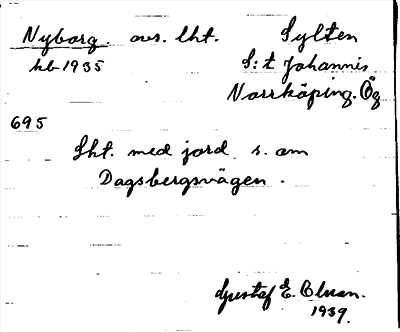 Nyborg. avs. lht. Sylten
kb 1935 S:t Johannis.
Norrköping. Ög
695
Lht. med jord s. om
Dagsbergsvägen.
Gustaf E. Elman.
1939.